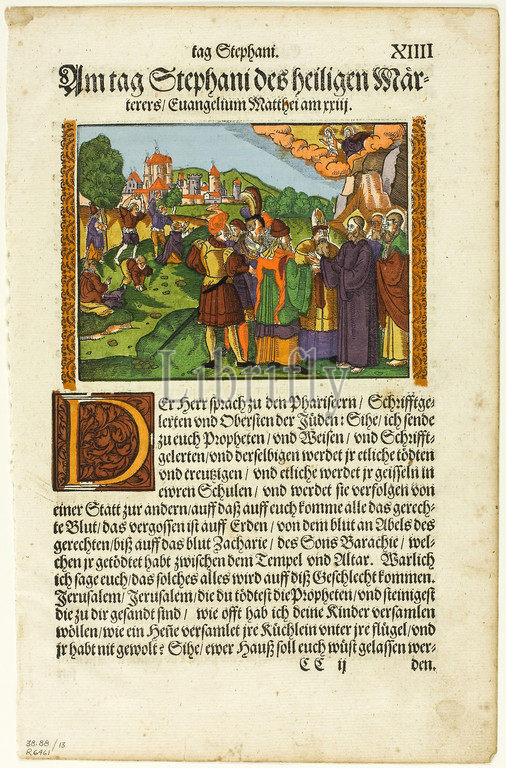 tag Stephani. XIIII
Am tag Stephani des heiligen Mär-
terers/ Euangelium Matthei am xxiij.
Librifly
DEr Herr sprach zu den Phariseern/ Schrifftge-
lerten und Obersten der Jüden: Sihe/ ich sende
zu euch Propheten/ vnd Weisen/ vnd Schrifft-
gelerten/ vnd derselbigen werdet jr etliche tödten
vnd creutzigen/ vnd etliche werdet jr geisseln in
ewren Schulen/ vnd werdet sie verfolgen von
einer Statt zur andern/ auff daß auff euch komme alle das gerech-
te Blut/ das vergossen ist auff Erden/ von dem blut an Abels des
gerechten/ biß auff das blut Zacharie/ des Sons Barachie/ wel-
chen jr getödtet habt zwischen dem Tempel vnd Altar. Warlich
ich sage euch/ das solches alles wird auff diß Geschlecht kommen.
Jerusalem/ Jerusalem/ die du tödtest die Propheten/ vnd steinigest
die zu dir gesandt sind/ wie offt hab ich deine Kinder versamlen
wöllen/ wie ein Heñe versamlet jre Küchlein vnter jre flügel/ vnd
jr habt nit gewolt? Sihe/ ewer Hauß soll euch wüst gelassen wer-
CC ij den.
38.88/13
R6461